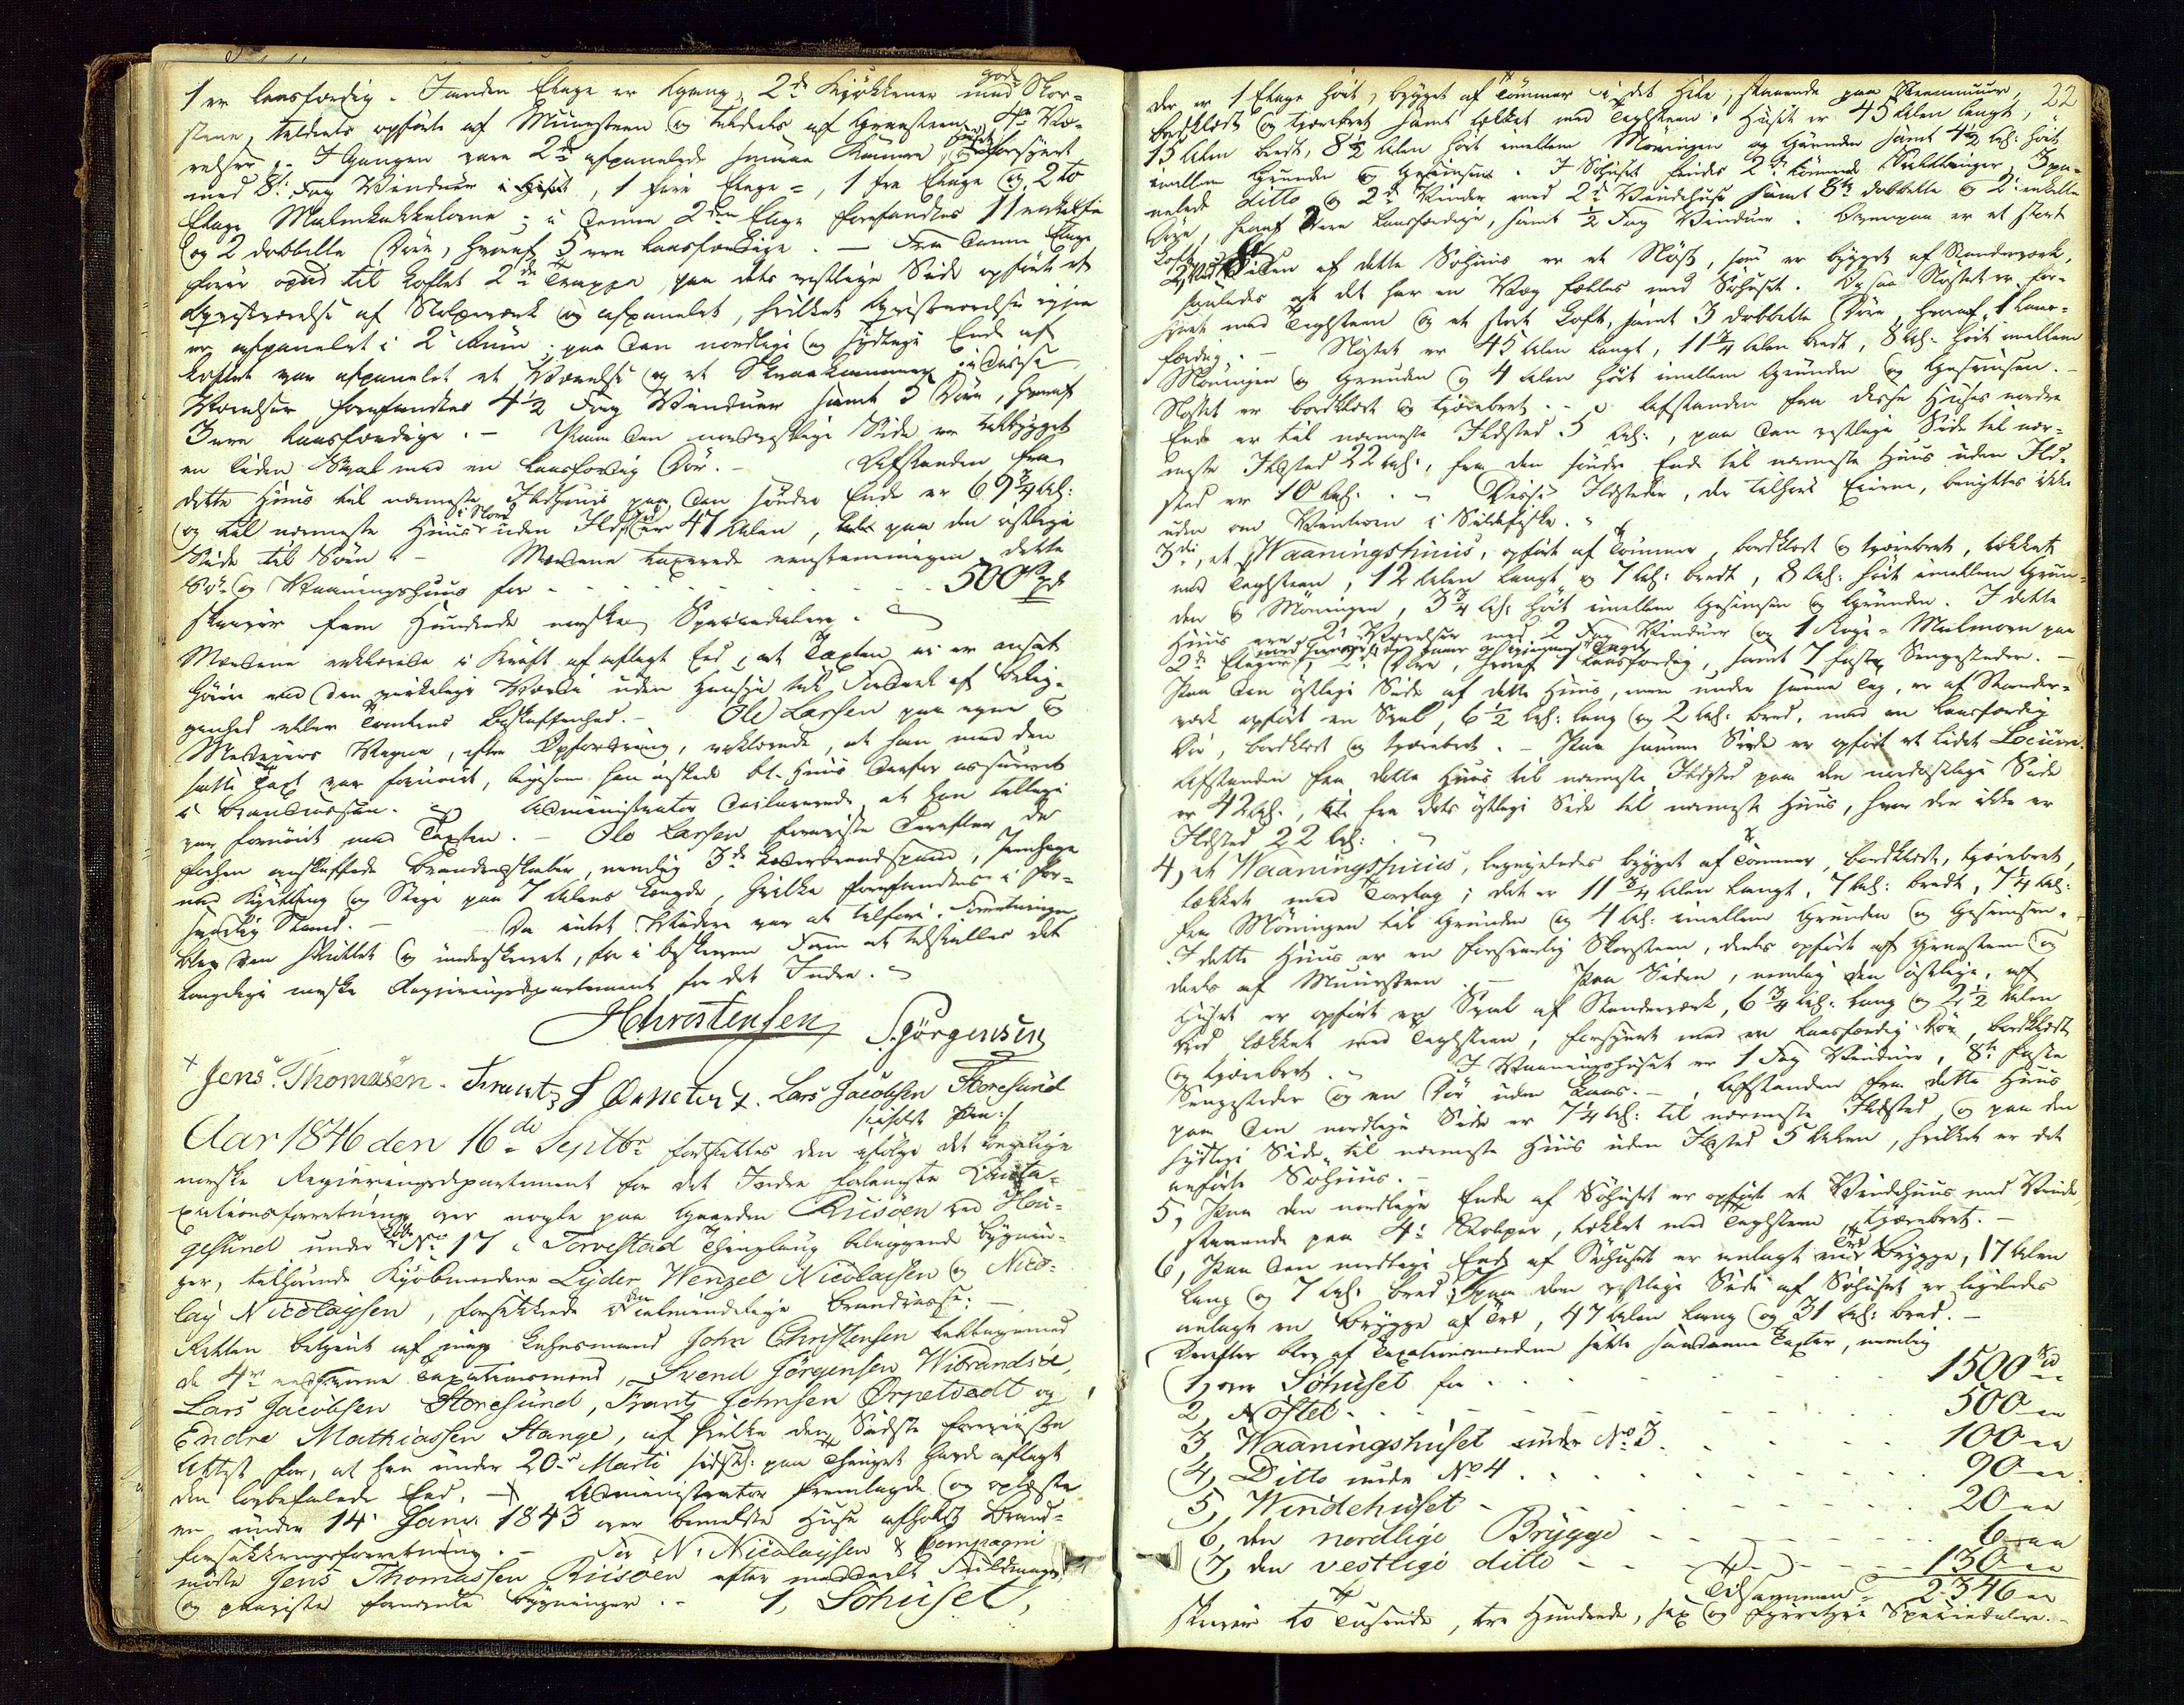 1 er laasfærdig. I anden Etage er Gang, 2de Kjøkkener med gode Skor-
stene, tildeels opførte af Muursteen og tildeels af Graasteen, 4re Væ-
relser. I Gangen vare 2de afpanelede smaae Kamre, forsynet
med 8te Fag Vinduer i Huset, 1 fiire Etage, 1 tre Etage og 2 to
Etage Malmkakkelovne; i denne 2den Etage forefandtes 11 enkelte
og 2 dobbelte Døre, hvoraf 5 ere laasfærdige. — Fra denne Etage
fører opad til Loftet 2de Trapper, paa dets vestlige Side opført et
Qvistværelse af Stolpeværk og afpanelet, hvilket Qvistværelse igjen
er afpanelet i 2de Rum; paa den nordlige og sydlige Ende af
Loftet var afpanelet et Værelse og et Skraakammer; i disse
Værelser forefandtes 4½ Fag Vinduer samt 5 Døre, hvoraf
3 ere laasfærdige. — Paa den nordvestlige Side er tilbygget
en liden Sval med en laasfærdig Dør. — Afstanden fra
dette Huus til nærmeste Ildhuus paa den søndre Ende er 69¾ Al:
og til nærmeste Huus i Nord uden Ildsted er 47 Alen, paa den østlige
Side til Søen. — Mændene taxerede eenstemmigen dette
Sø- og Vaaningshuus for . . . . . . . 500 Spd
skriver fem Hundrede norske Speciedaler.
Mændene erklærede i Kraft af aflagt Eed, at Taxten ei er ansat
høiere end den virkelige Værdie uden Hensyn til Fordeel af Belig-
genhed eller Tomtens Beskaffenhed. — Ole Larsen paa egne og
Medeieres Vegne, efter Opfordring, erklærede, at han med den
satte Taxt var fornøiet, ligesom han ønskede bt. Huus derfor assureret
i Brandcassen. — Administrator declarerede at han tillige
var fornøiet med Taxten. — Ole Larsen foreviste derefter de
forhen anskaffede Brandredskaber, nemlig 3de Læderbrandspand, Jernhage
med Kjetting og Stige paa 7 Alens Længde, hvilke forefandtes i for-
svarlig Stand. — Da intet Videre var at tilføre, Forretningen
blev den sluttet og underskrevet, for i beskreven Form at tilstilles det
kongelige norske Regjeringsdepartement for det Indre.
JChristensen S. Jørgensen
Jens Thomasen. Frantz J Ørpetvedt. Lars Jacobsen Storesund
/: iholdt Pen:/
Aar 1846 den 16de Septbr fortsattes den ifølge det kongelige
norske Regjeringsdepartement for det Indre forlangte Omta-
xationsforretning over nogle paa Gaarden Riisøen ved Hou-
gesund under No 17 i Torvestad Thinglaug beliggende Bygnin-
ger, tilhørende Kjøbmændene Lyder Wenzel Nicolaysen og Nico-
lay Nicolaysen, forsikkrede i den almindelige Brandcasse: —
Retten betjent af mig Lehnsmand John Christensen tilligemed
de 4re edsvorne Taxationsmænd, Svend Jørgensen Wibrandsøe,
Lars Jacobsen Storesund, Frantz Johnsen Ørpetvedt og
Endre Mathiassen Stange, af hvilke den Sidste foreviste
Attest for, at han under 20de Marti sidstl: paa Thinget havde aflagt
den lovbefalede Eed. — Administrator fremlagde og oplæste
en under 14 Janr. 1843 over bemeldte Huse afholdt Brand-
forsikkringsforretning. — For N. Nicolaysen & Compagni
mødte Jens Thomassen Riisøen efter meddeelt Fuldmagt,
og paaviste fornævnte Bygninger. — 1, Søhuset,
22
der er 1 Etage høit, bygget af Tømmer i det Hele, staaende paa Steenmuur,
bordklædt og tjærebret samt tækket med Teglsteen. Huset er 45 Alen langt,
15 Alen bredt, 8½ Alen høit imellem Møningen og Grunden samt 4½ Al: høit
imellem Grunden og Gesimsen. I Søhuset findes 2de tømrede Saltebinger, 3 pa-
nelede Ditto og 2de Vinder med 2de Vindehuse samt 8te dobbelte og 2 enkelte
Døre, hvoraf 2 ere laasfærdige, samt ½ Fag Vinduer. Ovenpaa er et stort
Loft.
2, Ved Siden af dette Søhuus er et Nøst, som er bygget af Standerværk,
saaledes at det har en Væg fælles med Søhuset. Ogsaa Nøstet er for-
synet med Teglsteen og et stort Loft, samt 3 dobbelte Døre, hvoraf 1 laas-
færdig. — Nøstet er 45 Alen langt, 11¾ Alen bredt, 8 Al: høit imellem
Møningen og Grunden og 4 Alen høit imellem Grunden og Gesimsen. —
Nøstet er bordklædt og tjærebret. — Afstanden fra disse Huses nordre
Ende er til nærmeste Ildsted 5 Al:, paa den vestlige Side til nær-
meste Ildsted 22 Al:, fra den søndre Ende til nærmeste Huus uden Ild-
sted er 10 Al: — Disse Ildsteder, der tilhøre Eierne, benyttes ikke
uden om Vinteren i Sildefiske. —
3di, et Waaningshuus, opført af Tømmer, bordklædt og tjærebret, tækket
med Teglsteen, 12 Alen langt og 7 Al: bredt, 8 Al: høit imellem Grun-
den og Møningen, 3¾ Al: høit imellem Gesimsen og Grunden. I dette
Huus ere 2de Værelser med 2 Fag Vinduer og 1 Kogeovn-Malmovn paa
2de Etager, 2de Døre, hvoraf 1 laasfærdig, samt 7 faste Sengesteder. —
Paa den østlige Side af dette Huus, men under samme Tag, er af Stander-
værk opført en Sval, 6½ Al: lang og 2 Al: bred, med en laasfærdig
Dør, bordklædt og tjærebret. — Paa samme Side er opført et lidet Locum.
Afstanden fra dette Huus til nærmeste Ildsted paa den nordøstlige Side
er 42 Al:, fra dets østlige Side til nærmeste Huus, hvor der ikke er
Ildsted 22 Al:
4, et Waaningshuus, ligeledes bygget af Tømmer, bordklædt, tjærebret,
tækket med Torvtag; det er 11¾ Alen langt, 7 Al: bredt, 7¼ Al:
fra Møningen til Grunden og 4 Al: imellem Grunden og Gesimsen.
I dette Huus er en forsvarlig Skorsteen, deels opført af Graasteen og
deels af Muursteen. — Paa Siden, nemlig den østlige, af
Huset er opført en Sval af Standerværk, 6¾ Al: lang og 2½ Alen
bred tækket med Teglsteen, forsynet med en laasfærdig Dør, bordklædt
og tjærebret. — I Vaaningshuset er 1 Fag Vinduer, 8te faste
Sengesteder og en Dør uden Laas. — Afstanden fra dette Huus
paa den nordlige Side er 7¼ Al: til nærmeste Ildsted, og paa den
sydlige Side til nærmeste Huus uden Ildsted 5 Alen, hvilket er det
anførte Søhuus. —
5, Paa den nordlige Ende af Søhuset er opført et Vindehuus med Vinde,
staaende paa 4re Stolper, tækket med Teglsteen, tjærebret. —
6, Paa den nordlige Ende af Søhuset er anlagt en Brygge, 17 Alen
lang og 7 Al: bred; paa den vestlige Side af Søhuset er ligeledes
anlagt en Brygge af Træ, 47 Alen lang og 31 Al: bred. —
Derefter blev af Taxationsmændene satte saadanne Taxter, nemlig
1, over Søhuset for . . . . . . 1500 Spd
2, Nøstet . . . . . . 500 "
3, Waaningshuset under No 3. . . . . . 100 "
4, Ditto under No 4 . . . . . . 90 "
5, Windehuset - - - - - 20 "
6, den nordlige Brygge - - - - - 6 "
7, den vestlige ditto - - - - - 130 "
Tilsammen 2346 "
skriver to Tusinde, tre Hundrede, sex og fyrretyve Speciedaler. —